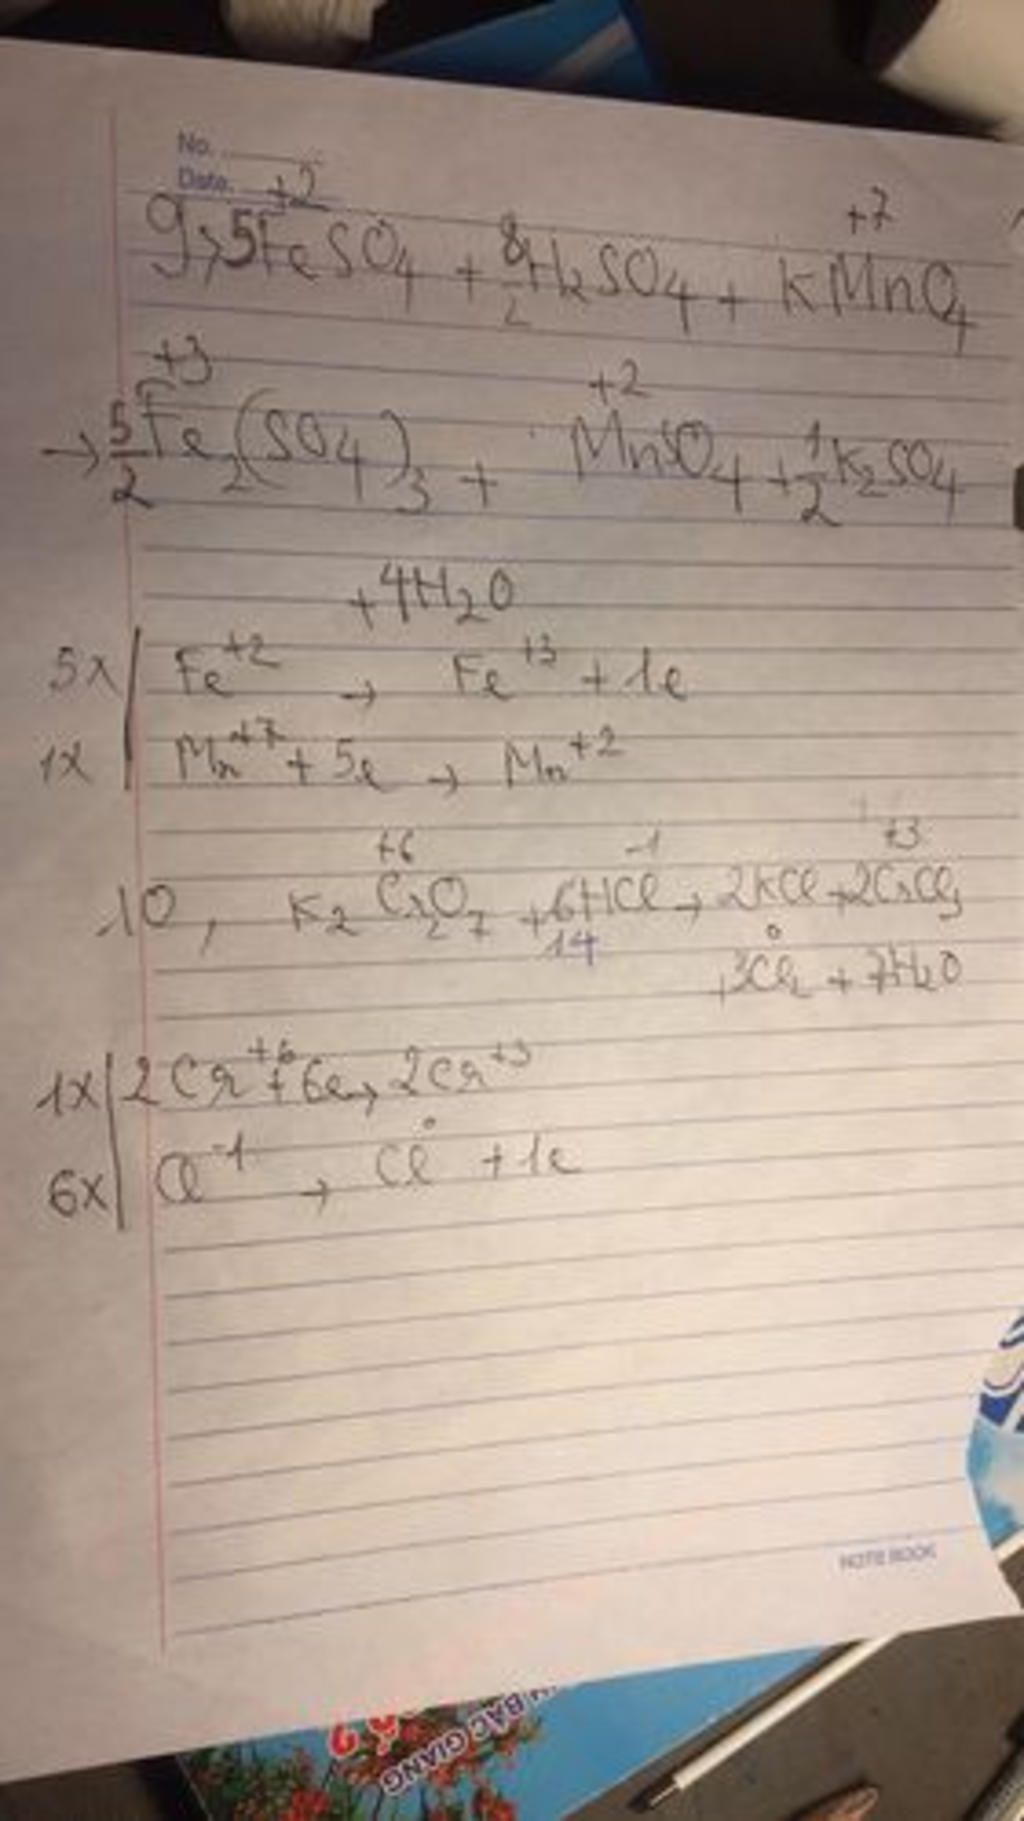 No.
Date.
+2 +7
9, 5FeSO4 + 8/2 H2SO4 + KMnO4
+3 +2
→ 5/2 Fe2(SO4)3 + MnSO4 + 1/2 K2SO4
+ 4H2O
5x | Fe+2 → Fe+3 + 1e
1x | Mn+7 + 5e → Mn+2
+6 -1 +3
10, K2Cr2O7 + 6HCl → 2KCl + 2CrCl3
14 0
+ 3Cl2 + 7H2O
1x | 2Cr+6 + 6e → 2Cr+3
6x | Cl-1 → Cl0 + 1e
NOTE BOOK
BẮC GIANG